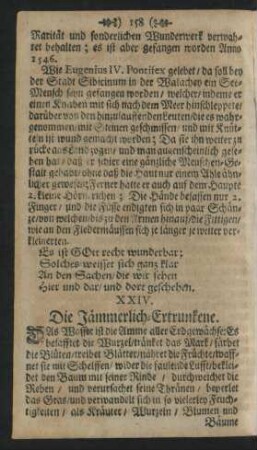 158
Rarität und sonderlichen Wunderwerk verwah-
ret behalten; es ist aber gefangen worden Anno
1546.
Wie Eugenius IV. Pontifex gelebet / da soll bey
der Stadt Sibicinum in der Walachey ein See-
Mensch seyn gefangen worden / welcher / indem er
einen Knaben mit sich nach dem Meer hinschleppete /
darüber von den hinzulauffenden Leuten / die es wahr-
genommen / mit Steinen geschmissen / und mit Knüt-
teln ist wund gemacht worden; Da sie ihn weiter zu-
rücke ans Land zogen / und man augenscheinlich gese-
hen hat / daß er schier eine gäntzliche Menschen-Ge-
stalt gehabt / ohne daß die Haut nur einem Ahle ähn-
licher gewesen; Ferner hatte er auch auf dem Haupte
2. kleine Hörnrichen; Die Hände besassen nur 2.
Finger / und die Füsse endigten sich in paar Schän-
ze / von welchen bis zu den Armen hinauf / die Fittigen /
wie an den Fledermäussen sich je länger je weiter ver-
kleinerten.
Es ist GOtt recht wunderbar;
Solches weisset sich ganz klar
An den Sachen / die wir sehen
Hier und dar / und dort geschehen.
XXIV.
Die Jämmerlich-Ertrunkene.
DAs Wasser ist die Amme aller Erdgewächse: Es
besafftet die Wurzel / tränket das Mark / färbet
die Blüten / weibet Blätter / nähret die Früchte / waff-
net sie mit Schelffen / wider die sausende Luffe / beklei-
det den Baum mit seiner Rinde / durchweichet die
Reben / und verursachet seine Thränen / beperlet
das Gras / und verwandelt sich in so vielerley Feuch-
tigkeiten / als Kräuter / Wurzeln / Blumen und
Bäume